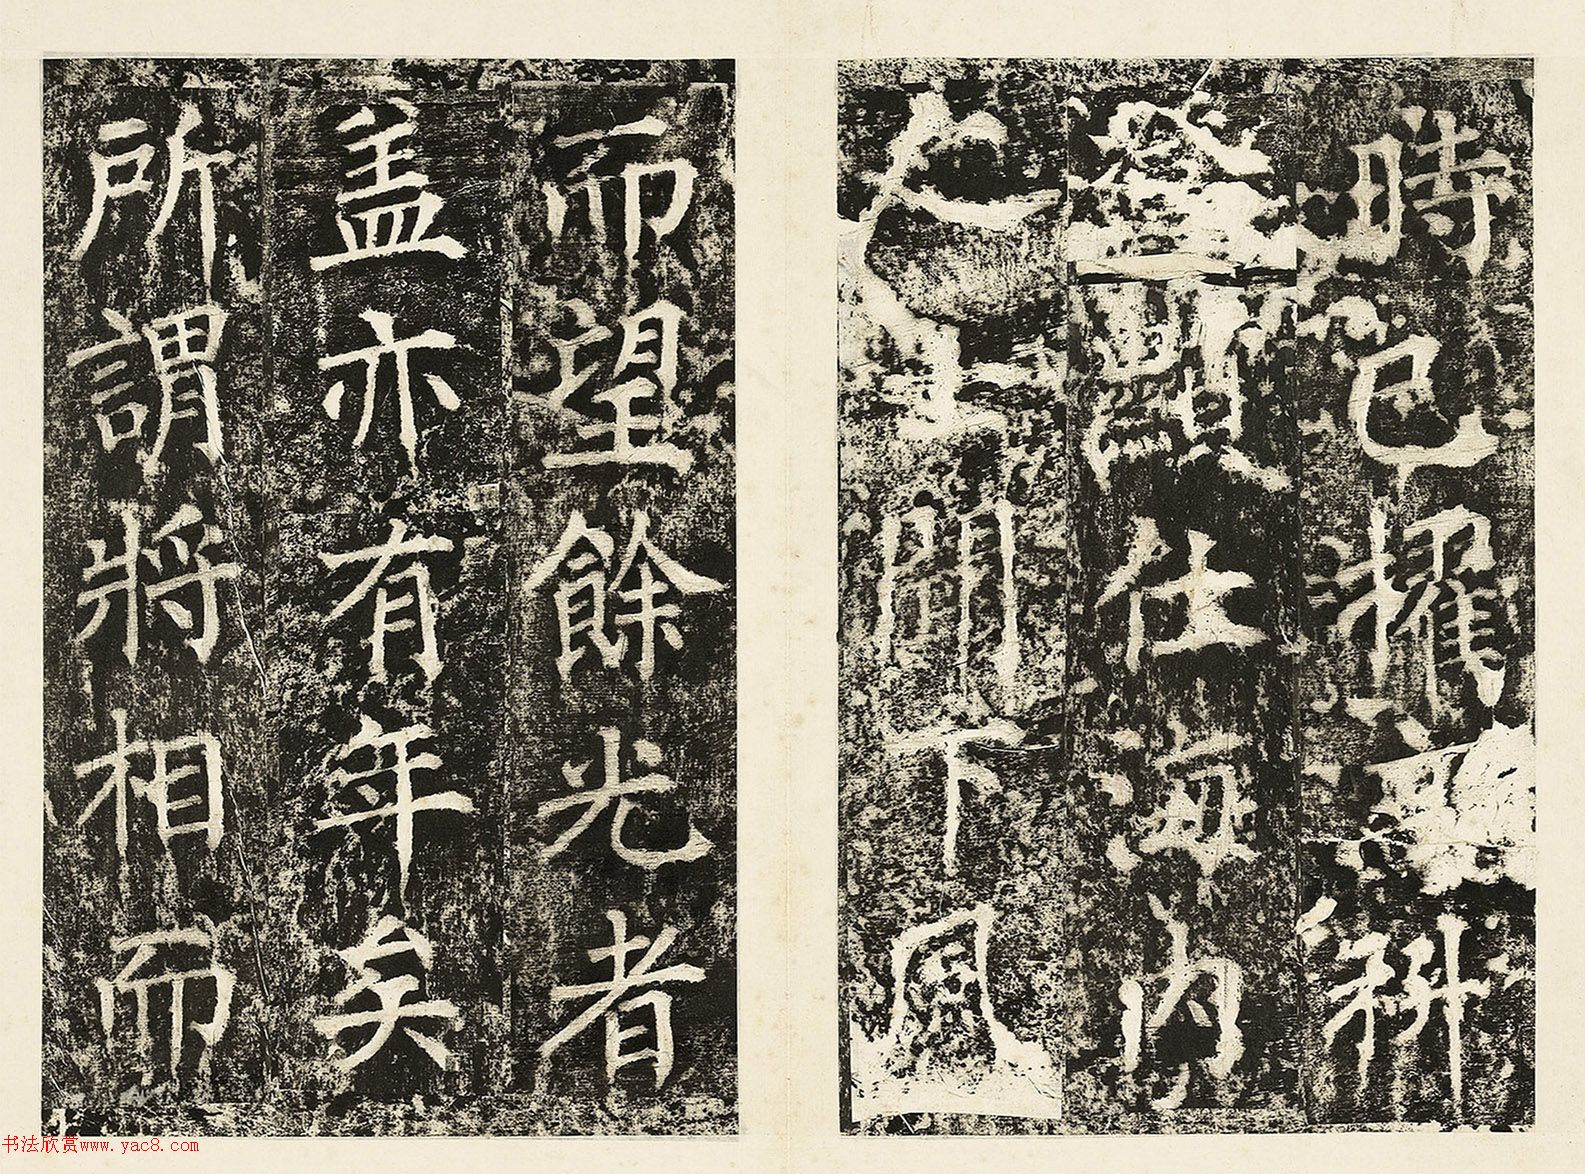 時已擢科
登顯仕海内
之士聞下風
而望餘光者
盖亦有年矣
所謂將相而
书法欣赏www.yac8.com